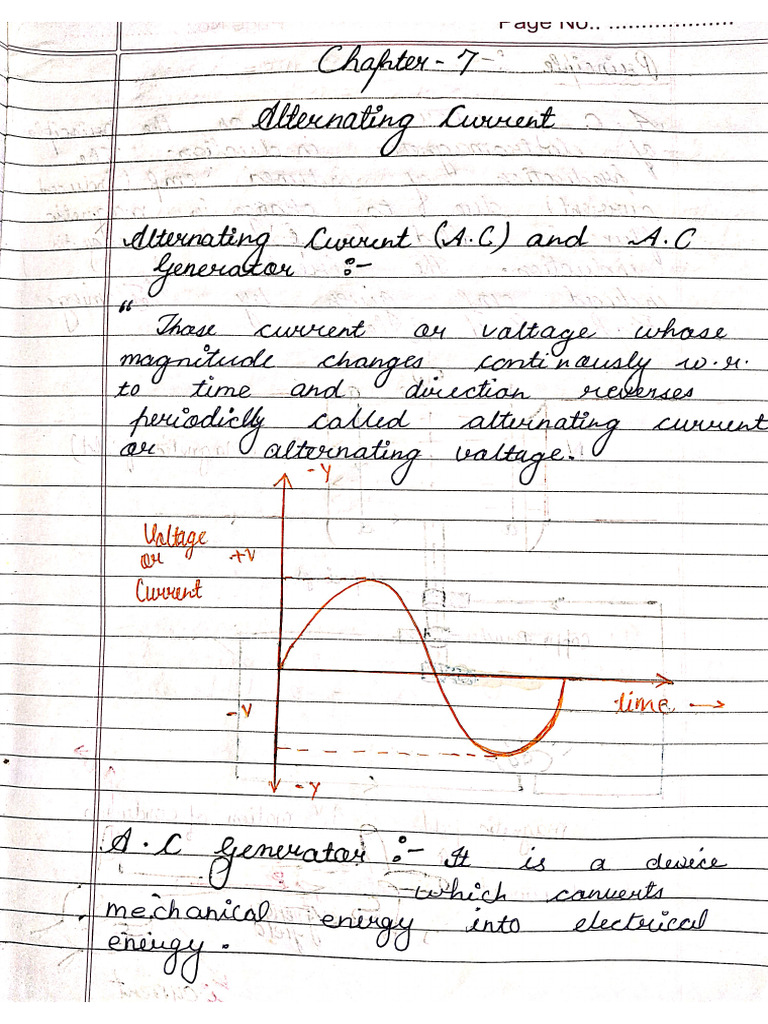 Page No.: ...................
Chapter - 7
Alternating Current
Alternating Current (A.C) and A.C
Generator :-
"
Those current or voltage whose
magnitude changes continously w.r.
to time and direction reverses
periodiclly called alternating current
or alternating voltage.
-Y
Voltage
or +V
Current
time →
-V
-Y
A.C Generator :- It is a device
which converts
mechanical energy into electrical
energy.